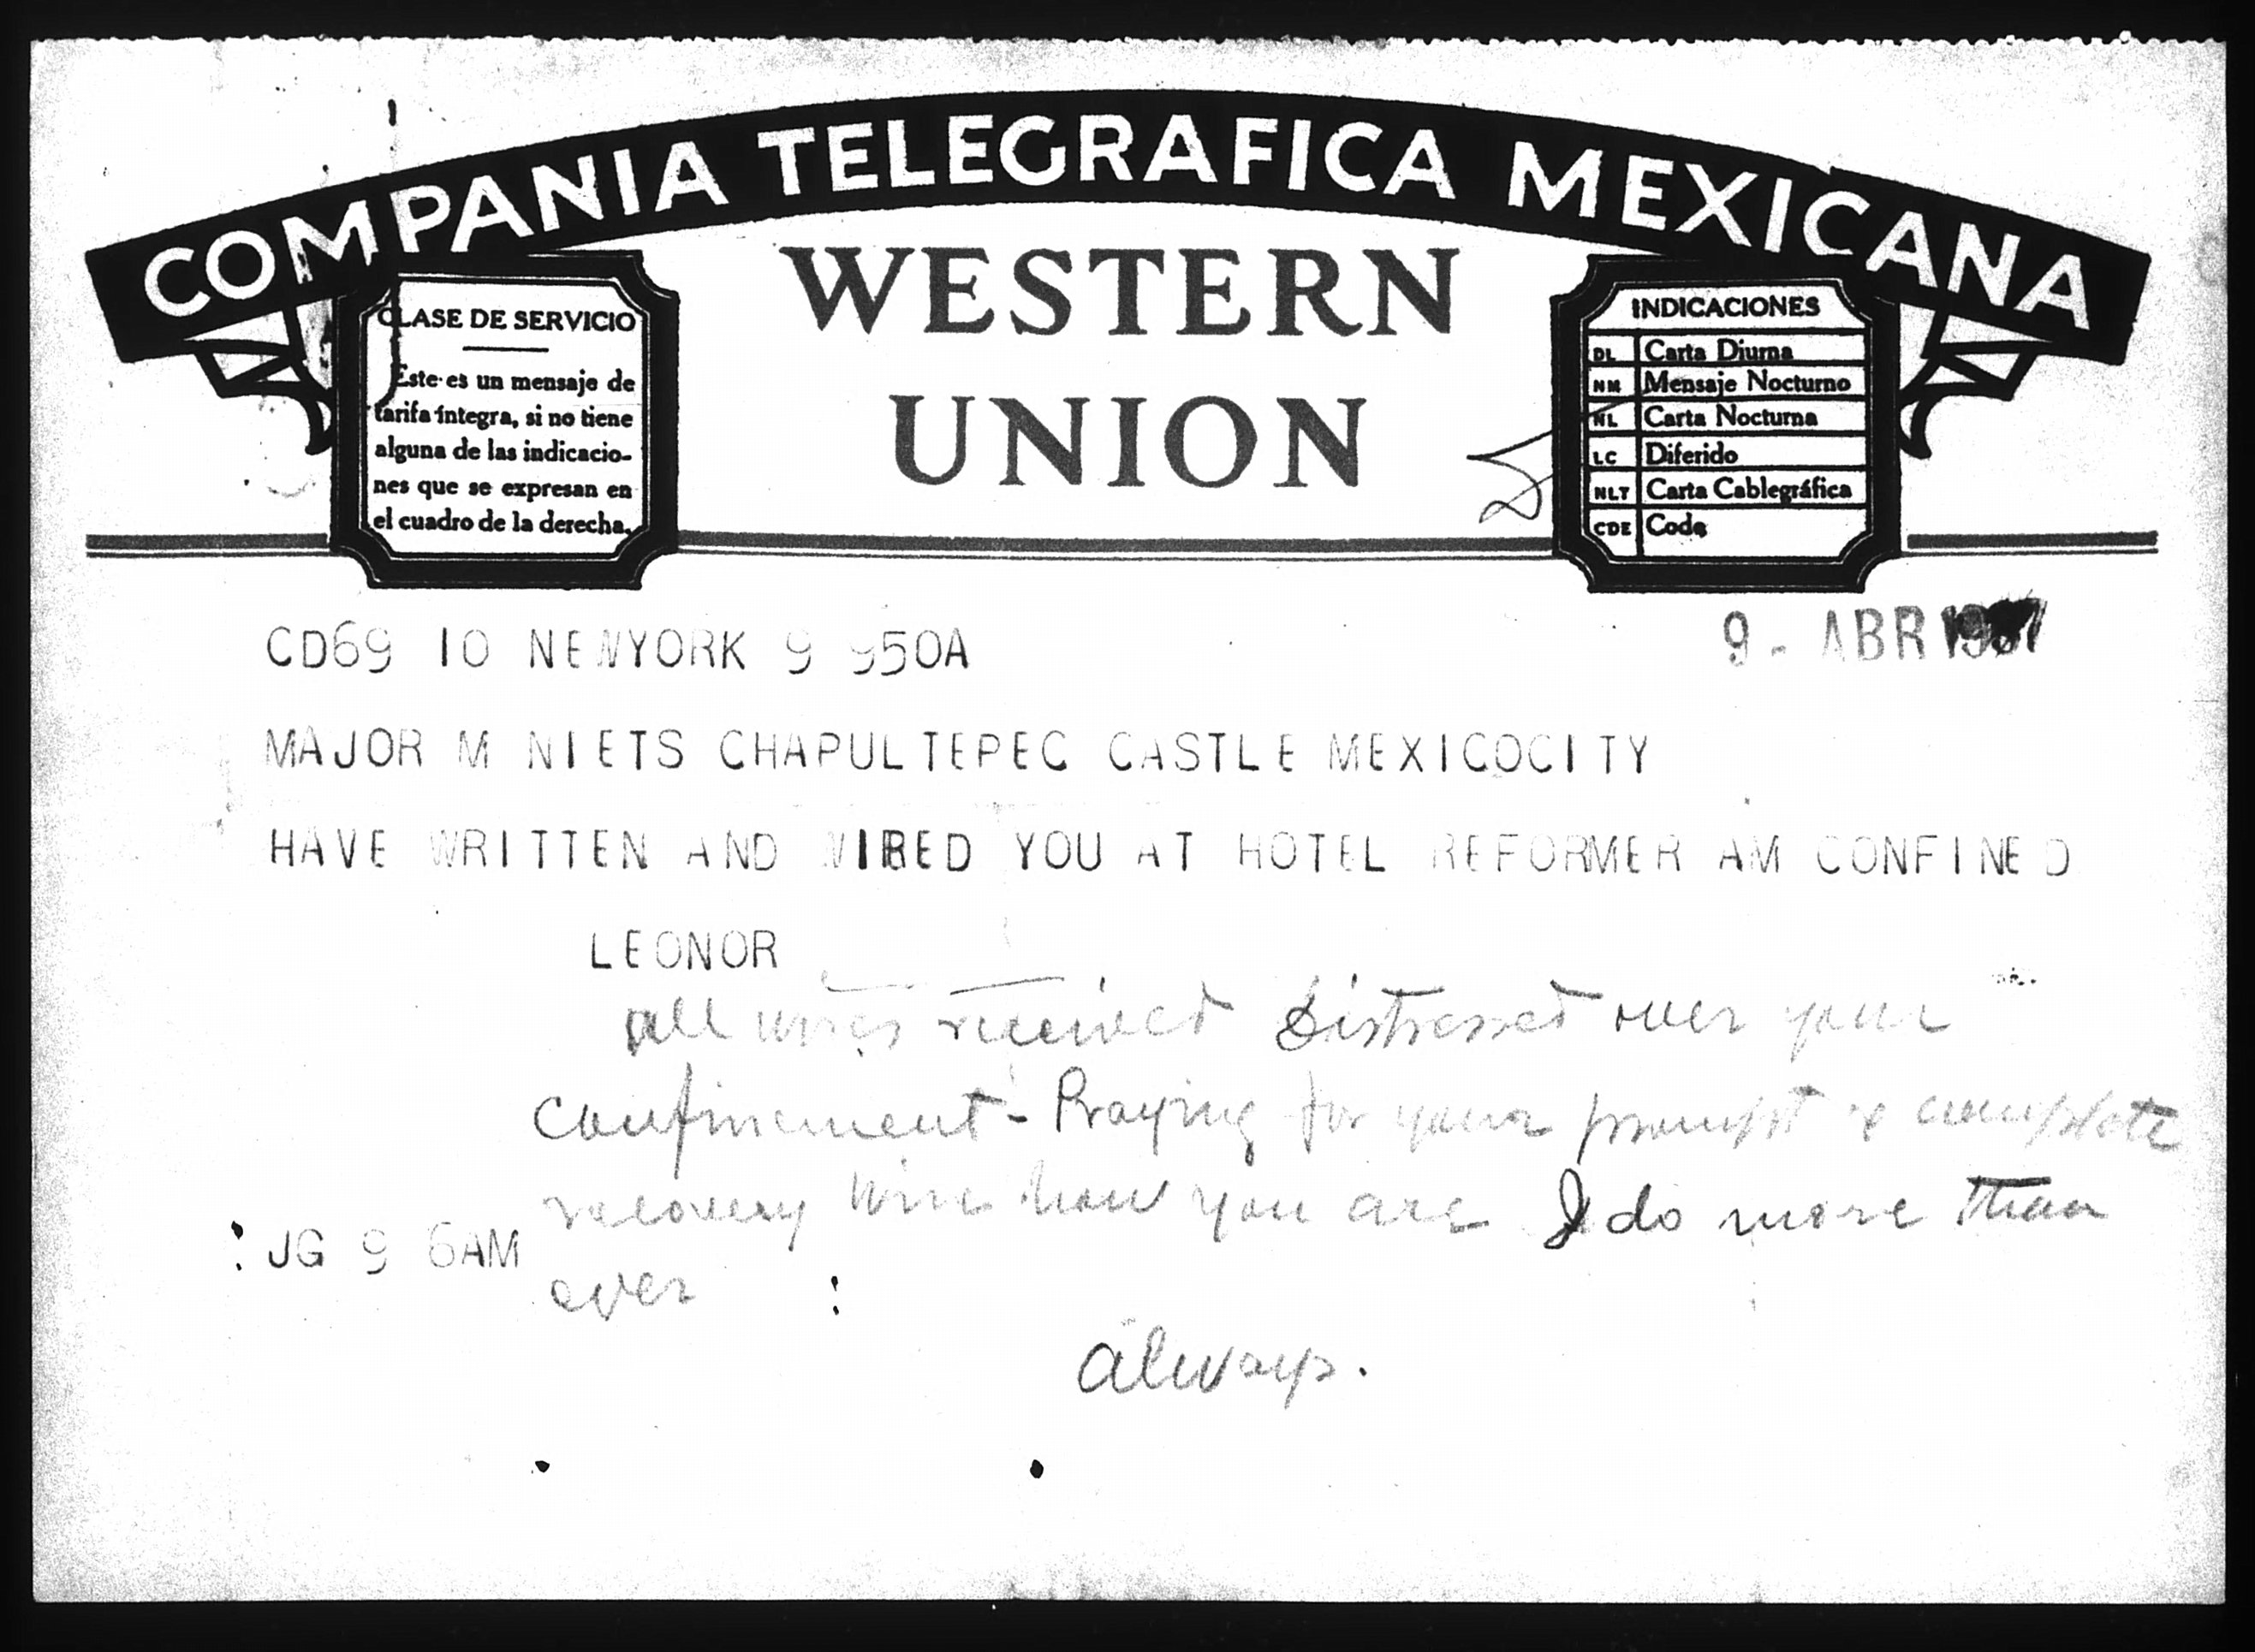 COMPANIA TELEGRAFICA MEXICANA
WESTERN
UNION
CLASE DE SERVICIO
Este es un mensaje de
tarifa integra, si no tiene
alguna de las indicacio-
nes que se expresan en
el cuadro de la derecha.
INDICACIONES
DL Carta Diurna
NM Mensaje Nocturno
NL Carta Nocturna
LC Diferido
NLT Carta Cablegráfica
CDE Code
9 - ABR 1937
CD69 10 NEWYORK 9 950A
MAJOR M NIETS CHAPULTEPEC CASTLE MEXICOCITY
HAVE WRITTEN AND WIRED YOU AT HOTEL REFORMER AM CONFINED
LEONOR
All wires received Distressed over your
confinement - Praying for your prompt & complete
recovery Wire how you are I do more than
ever
always.
JG 9 6AM